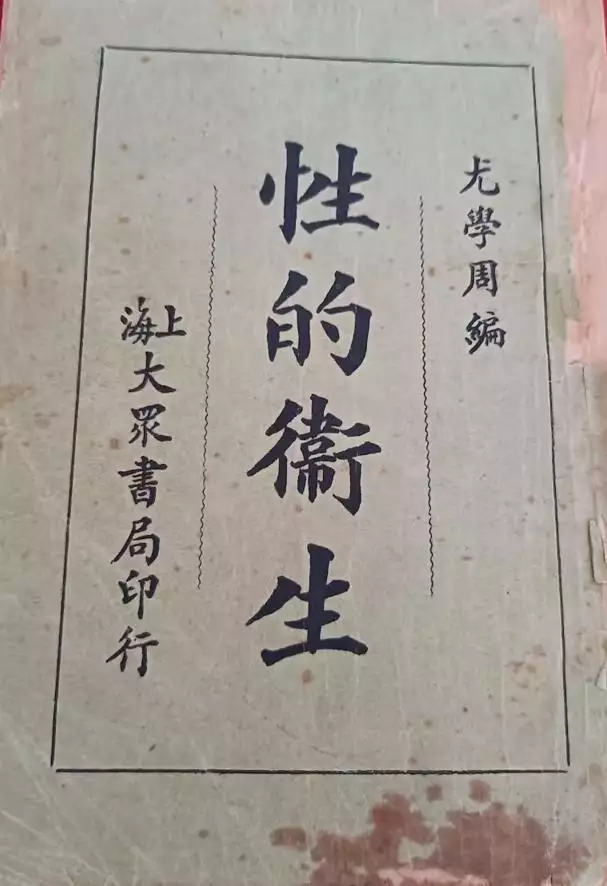 尤學周編
性的衞生
上海大眾書局印行